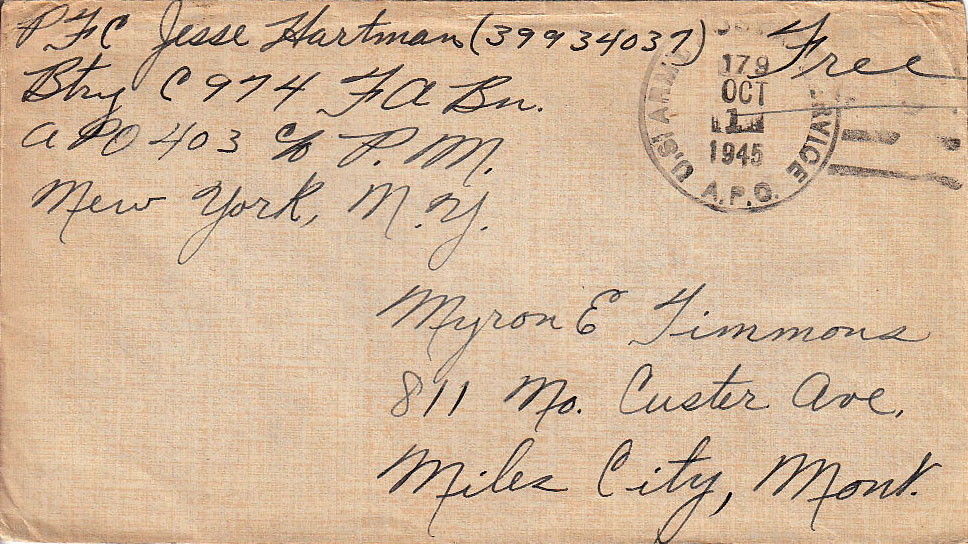 PFC Jesse Hartman (39934037)
Free
Btry C 974 FA Bn.
APO 403 c/o P.M.
New York, N.Y.
U.S. ARMY SERVICE
179
OCT
1
1945
A.P.O.
Myron E Timmons
811 No. Custer Ave.
Miles City, Mont.